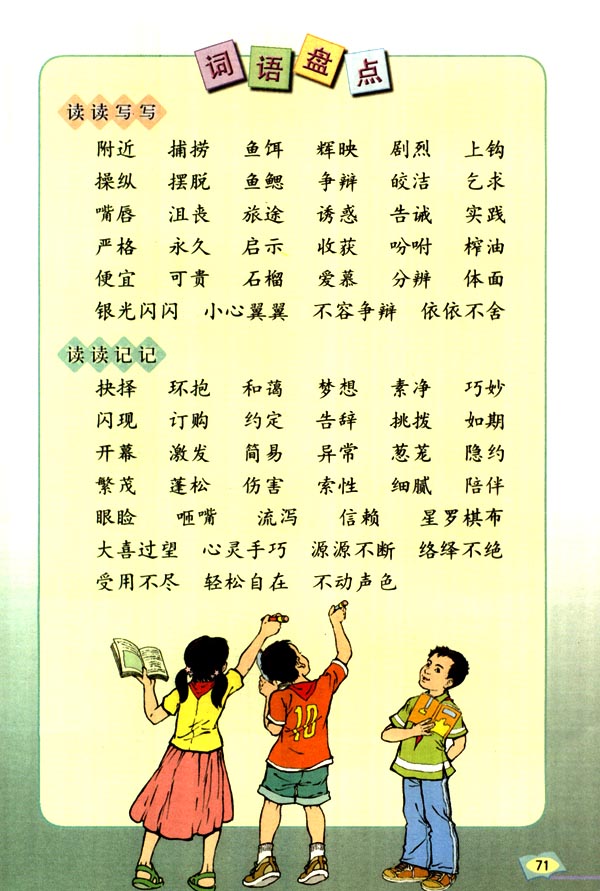 词语盘点
读读写写
附近 捕捞 鱼饵 辉映 剧烈 上钩
操纵 摆脱 鱼鳃 争辩 皎洁 乞求
嘴唇 沮丧 旅途 诱惑 告诫 实践
严格 永久 启示 收获 吩咐 榨油
便宜 可贵 石榴 爱慕 分辨 体面
银光闪闪 小心翼翼 不容争辩 依依不舍
读读记记
抉择 环抱 和蔼 梦想 素净 巧妙
闪现 订购 约定 告辞 挑拨 如期
开幕 激发 简易 异常 葱茏 隐约
繁茂 蓬松 伤害 索性 细腻 陪伴
眼睑 咂嘴 流泻 信赖 星罗棋布
大喜过望 心灵手巧 源源不断 络绎不绝
受用不尽 轻松自在 不动声色
10
71